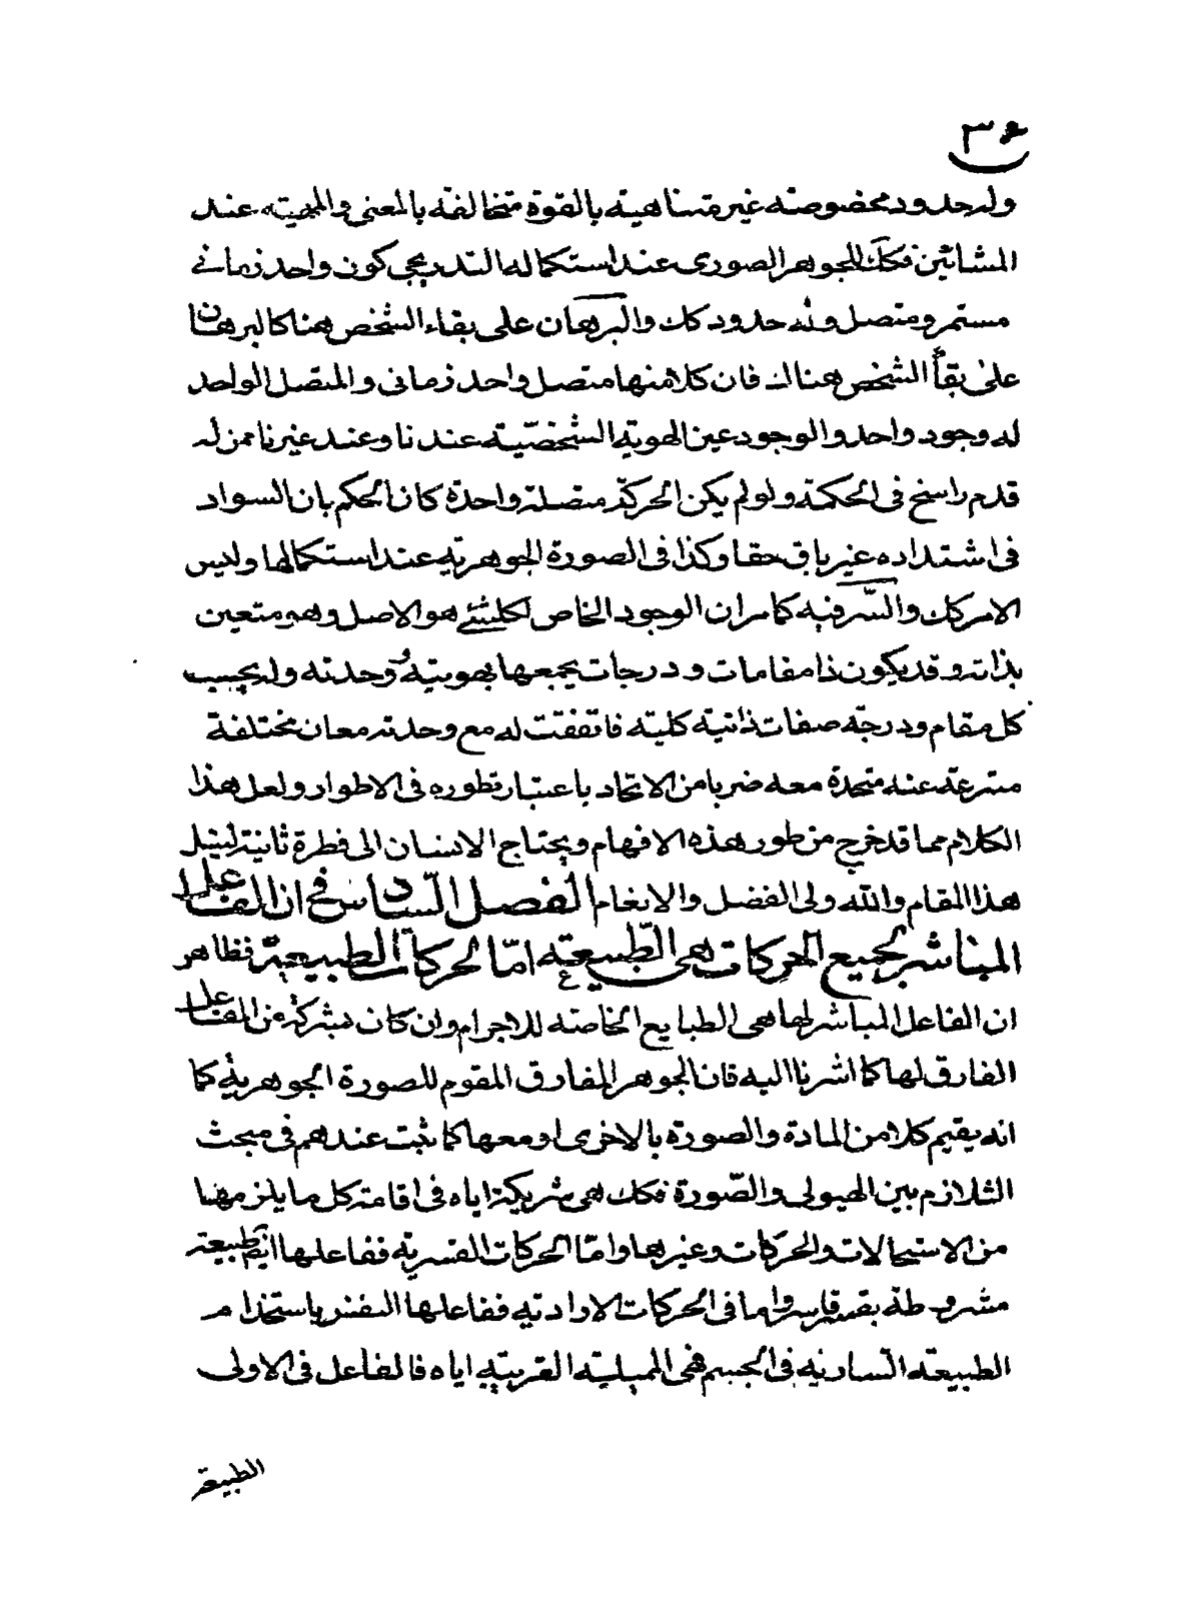 ٣۶
وله حدود مخصوصة غير متناهية بالقوة متخالفة بالمعنى والمهية عند
المشائين فكك للجوهر الصورى عند استكماله التدريجى كون واحد زمانى
مستمر ومتصل وله حدود كك والبرهان على بقاء الشخص هنا كالبرهان
على بقأ الشخص هناك فان كلا منها متصل واحد زمانى والمتصل الواحد
له وجود واحد والوجود عين الهوية الشخصّية عندنا وعند غيرنا ممن له
قدم راسخ فى الحكمة ولو لم يكن الحركة متصلة واحدة كان الحكم بان السواد
فى اشتداده غير باق حقا وكذا فى الصورة الجوهرية عند استكمالها وليس
الامر كك والسّر فيه كما مر ان الوجود الخاص لكلشئ هو الاصل وهو متعين
بذاته وقد يكون ذا مقامات ودرجات يجمعها بهويته ووحدته وله بحسب
كل مقام ودرجة صفات ذاتية كلية فاتفقت له مع وحدته معان مختلفة
منتزعة عنه متحدة معه ضربا من الاتحاد باعتبار تطوره فى الاطوار ولعل هذا
الكلام مما قد خرج من طور هذه الافهام ويحتاج الانسان الى فطرة ثانية لنيل
هذا المقام والله ولى الفضل والانعام الفصل السّادس فى ان الفاعل
المباشر لجميع الحركات هى الطّبيعة امّا الحركات الطبيعيّة فظاهر
ان الفاعل المباشر لها هى الطبايع الخاصة للاجرام وان كان بشركة من الفاعل
الفارق لها كما اشرنا اليه فان الجوهر المفارق المقوم للصورة الجوهرية كما
انه يقيم كلا من المادة والصورة بالاخرى او معها كما ثبت عندهم فى مبحث
التلازم بين الهيولى والصّورة فكك هى شريكة اياه فى اقامة كل ما يلزمها
من الاستحالات والحركات وغيرها وامّا الحركات القسرية ففاعلها ايضا طبيعة
مشروطة بقسر قاسر واما فى الحركات الارادية ففاعلها النفس باستخدام
الطبيعة السارية فى الجسم فهى المميلة القريبة اياه فالفاعل فى الاولى
الطبيعة